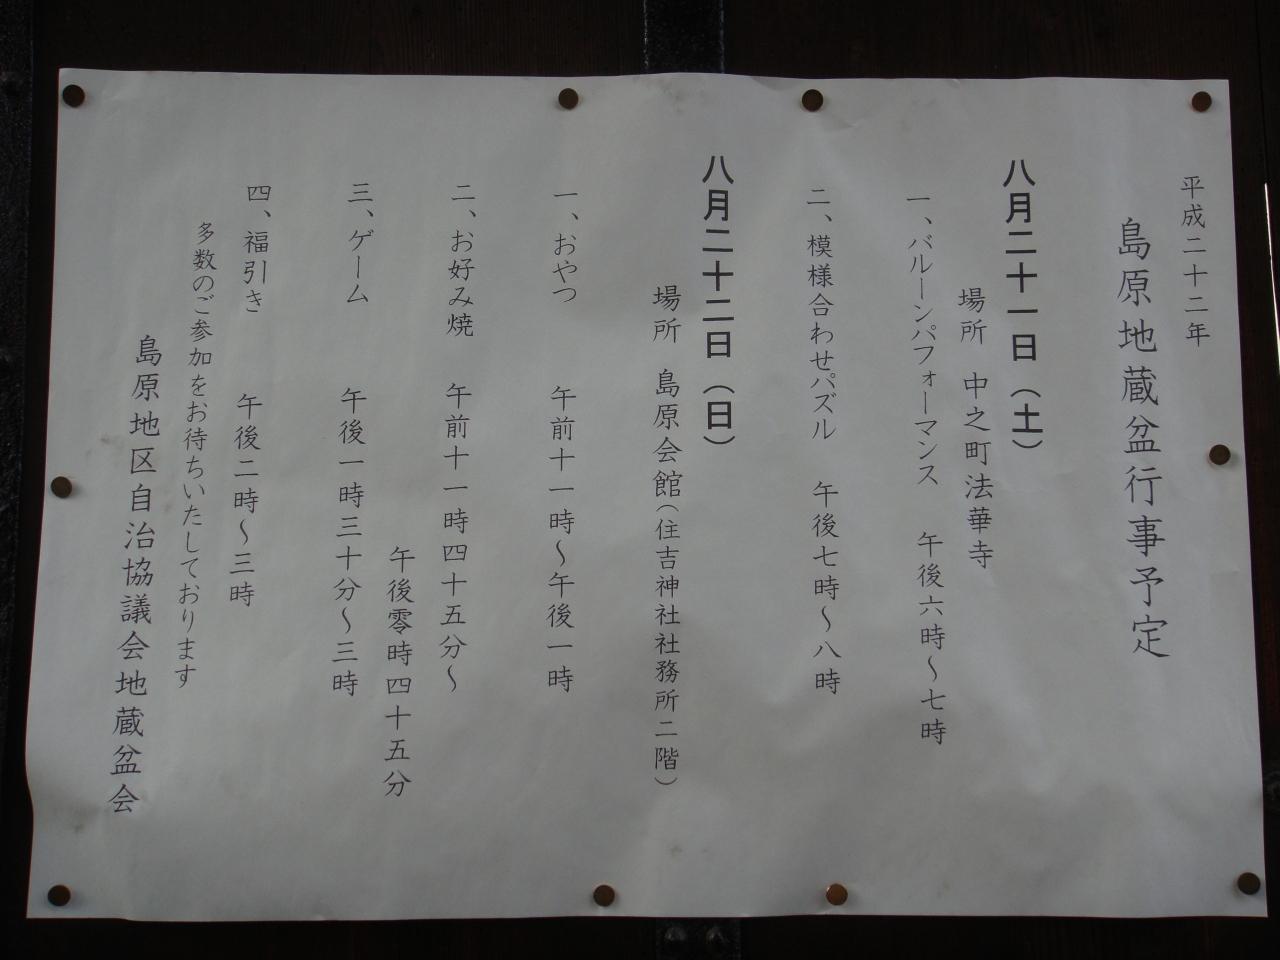 平成二十二年
島原地蔵盆行事予定
八月二十一日（土）
場所　中之町法華寺
一、バルーンパフォーマンス　午後六時～七時
二、模様合わせパズル　午後七時～八時
八月二十二日（日）
場所　島原会館（住吉神社社務所二階）
一、おやつ　午前十一時～午後一時
二、お好み焼　午前十一時四十五分～
午後零時四十五分
三、ゲーム　午後一時三十分～三時
四、福引き　午後二時～三時
多数のご参加をお待ちいたしております
島原地区自治協議会地蔵盆会